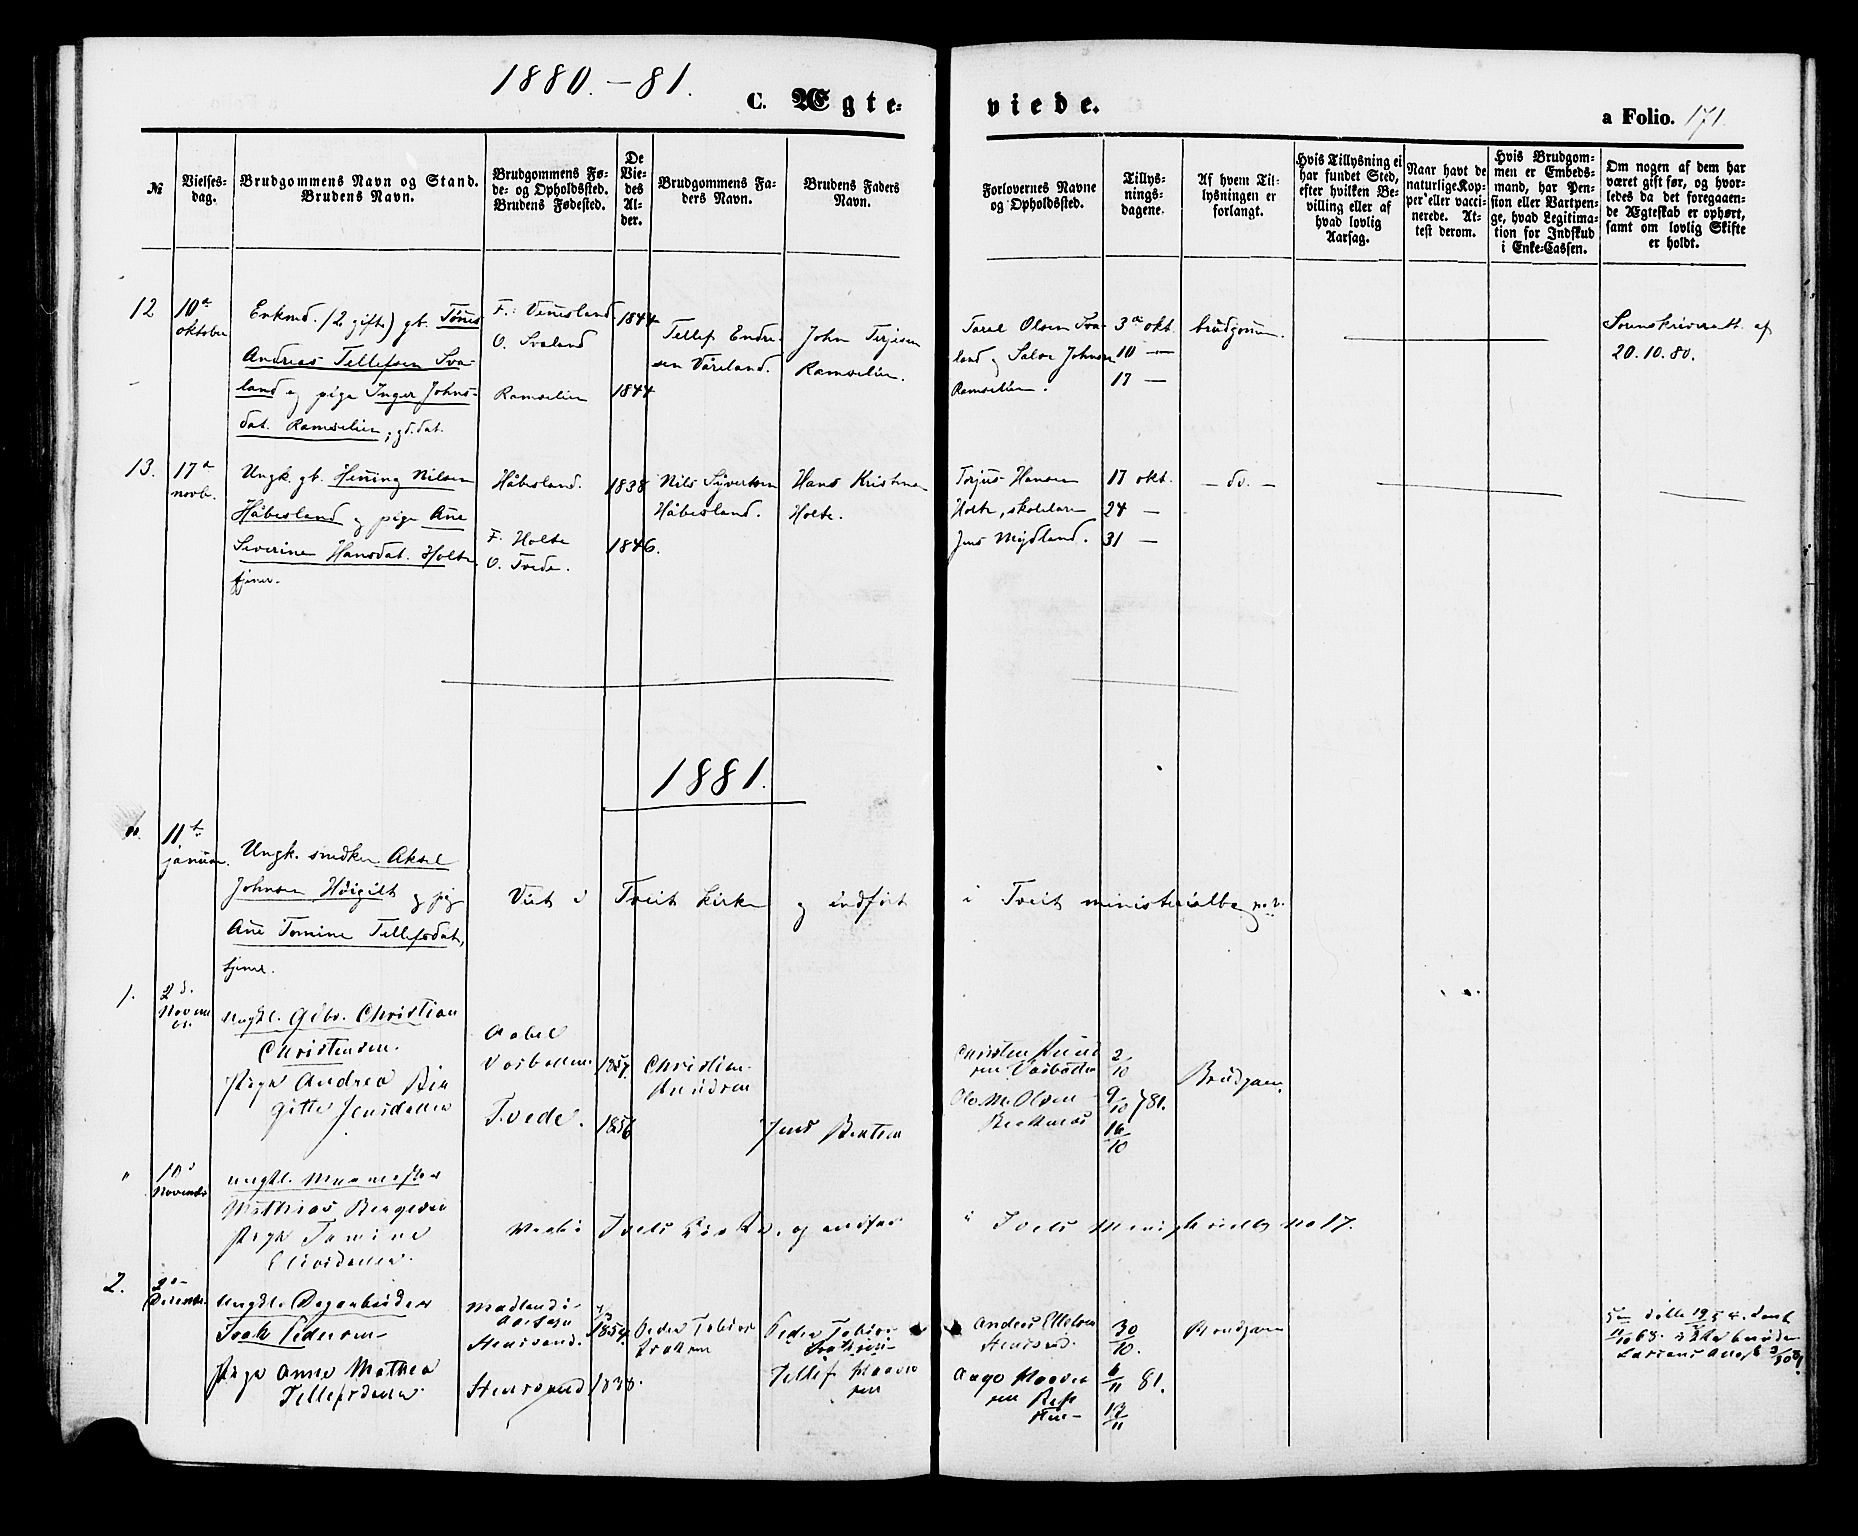 1880.-81.
C. Ægte-
viede.
a Folio. 171.
№
Vielses-
dag.
Brudgommens Navn og Stand.
Brudens Navn.
Brudgommens Fø-
de- og Opholdssted.
Brudens Fødested.
De
Vie-
des
Al-
der.
Brudgommens Fa-
ders Navn.
Brudens Faders
Navn.
Forlovernes Navne
og Opholdssted.
Tillys-
nings-
dagene.
Af hvem Til-
lysningen er
forlangt.
Hvis Tillysning ei
har fundet Sted,
efter hvilken Be-
villing eller af
hvad lovlig
Aarsag.
Naar havt de
naturlige Kop-
per eller vacci-
nerede. At-
test derom.
Hvis Brudgom-
men er Embeds-
mand, har Pen-
sion eller Vartpen-
ge, hvad Legitima-
tion for Indskud
i Enke-Cassen.
Om nogen af dem har
været gift før, og hvor-
ledes da det foregaaen-
de Ægteskab er ophørt,
samt om lovlig Skifte
er holdt.
12
10a
oktober
Enkmd. (2 gifte) gb. Tønes
Andreas Tellefsen Sva-
land og pige Inger Johns-
dat. Ramselien, gd.dat.
F. Vennesland
O. Svaland
Ramselien
1844
1844
Tellef Endre-
sen Våreland.
John Terjesen
Ramselien.
Tarel Olsen Sva-
land og Salve Johnsen
Ramselien.
3a okt.
10 —
17 —
brudgommen.
Sorenskriveratt. af
20.10.80.
13.
17a
novb.
Ungk. gb. Henning Nilsen
Håbesland og pige Ane
Severine Hansdat. Holte
tjener.
Håbesland.
F. Holte
O. Tvede.
1838
1846.
Nils Syvertsen
Håbesland.
Hans Kristian
Holte.
Torjus Hansen
Holte, skolelærer
Jens Mejdland.
17 okt.
24 —
31 —
— do. —
1881.
11te
januar.
Ungk. snedker Aksel
Johnsen Høigilt og pige
Ane Tomine Tellefsdat.,
tjener.
Viet i Tveit kirke og indført i Tveit ministerialbog no. 2.
1.
2d.
Novem
br.
Ungkl. Gbr. Christian
Christensen.
Pige Andrea Bir
gitte Jensdatter
Aabel
Vasbotten
Tvede.
1857.
1856
Christian
Knudsen
Jens Bentsen
Christen Knud
sen Vasbotten
Ole M. Olsen
2/10
9/10 81.
16/10
Brudgom.
"
10d
Novembr
Ungkl. Muurmester
Mathias Birgersen
Pige Tomine
og indført i Tveds no 17.
2.
2den
Decembr.
Ungkl. Dagarbeider
Isak Pedersen
Pige Anne Mathea
Tellefsdatter.
Stensrand.
Stensrand
1854
1838.
Peder Tobias
Isaksen
Peder Tobias
Isaksen
Tellef Haaver
sen
Anders Ellefsen
Stensrud.
Aage Haaver
sen
30/10.
6/11 81.
13/11
Brudgom